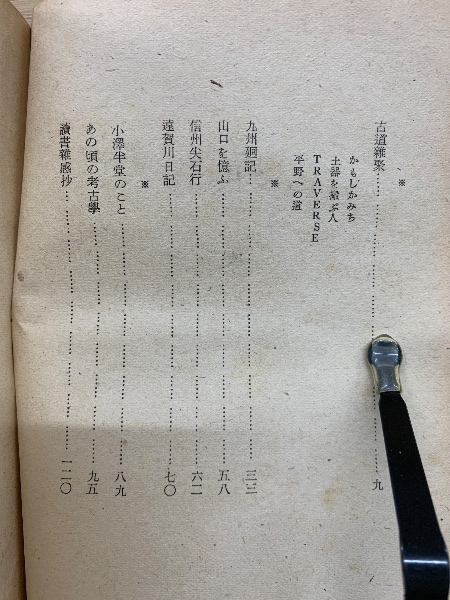 ※
古道雜聚……………………九
かもしかみち
土器を搬ぶ人
TRAVERSE
平野への道
※
九州廻記……………………三三
山口を憶ふ……………………五八
信州尖石行……………………六二
遠賀川日記……………………七〇
※
小澤半堂のこと……………………八九
あの頃の考古學……………………九五
讀書雜感抄……………………一二〇